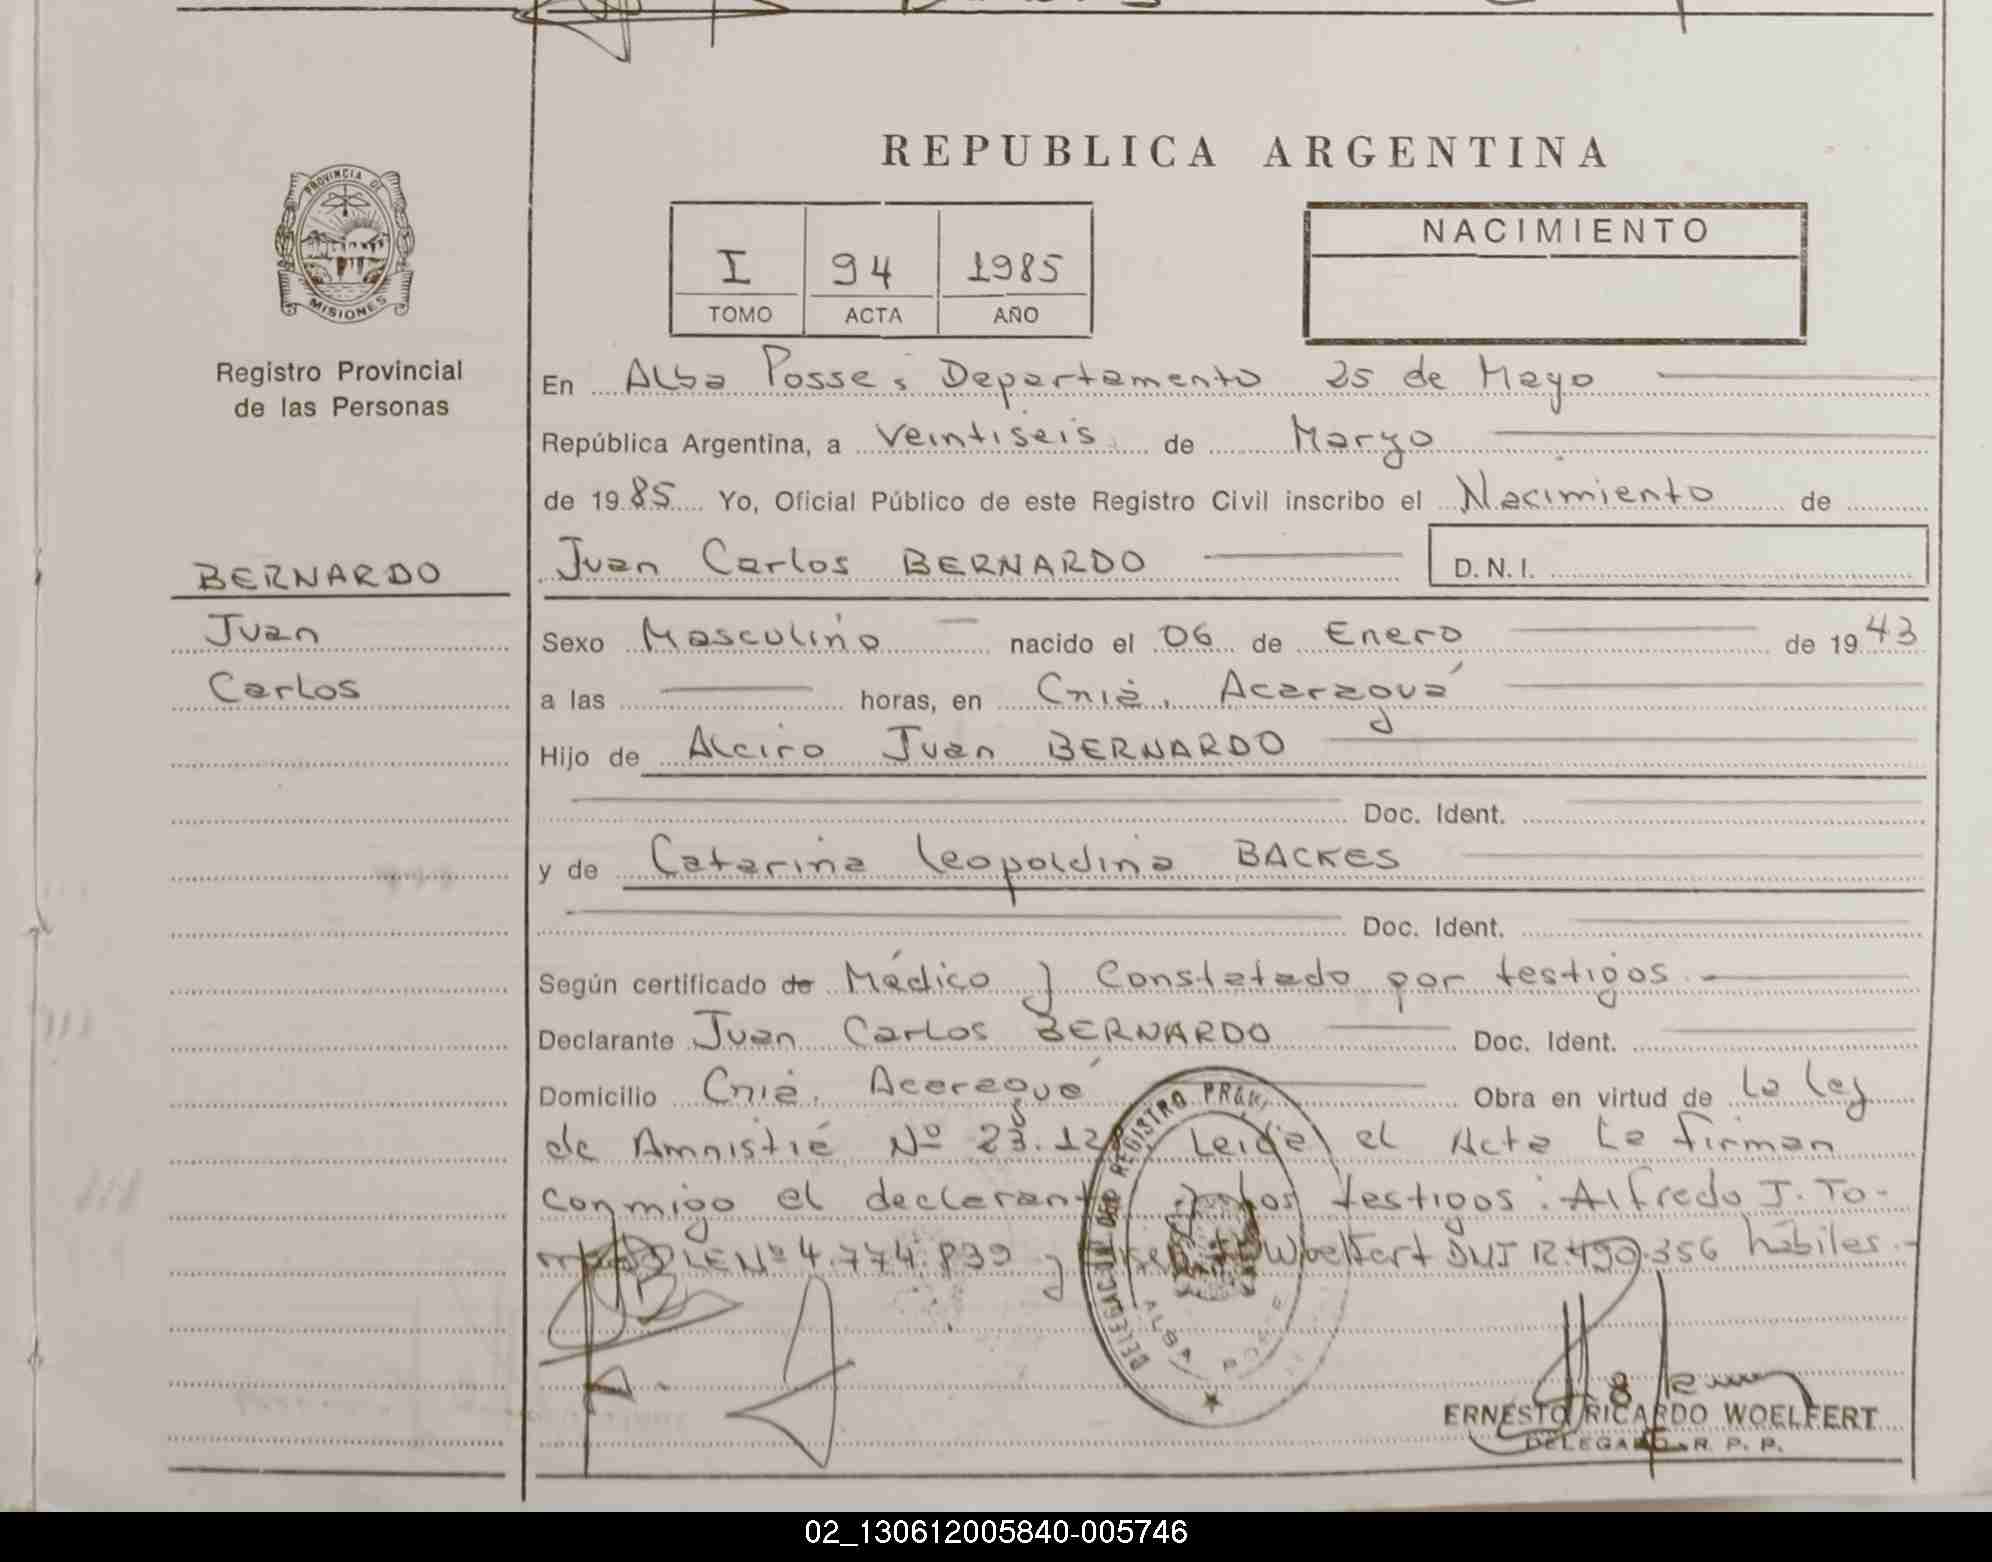 REPUBLICA ARGENTINA
PROVINCIA DE
MISIONES
Registro Provincial
de las Personas
I 94 1985
TOMO ACTA AÑO
NACIMIENTO
En Alba Posse, Departamento 25 de Mayo
República Argentina, a Veintiseis de Marzo
de 1985 Yo, Oficial Público de este Registro Civil inscribo el Nacimiento de
BERNARDO
Juan
Carlos
Juan Carlos BERNARDO
D.N.I.
Sexo Masculino nacido el 06 de Enero de 1943
a las horas, en Cniá. Acaraguá
Hijo de Alciro Juan BERNARDO
Doc. Ident.
y de Catarina Leopoldina BACKES
Doc. Ident.
Según certificado de Médico y Constatado por testigos.
Declarante Juan Carlos BERNARDO Doc. Ident.
Domicilio Cniá. Acaraguá Obra en virtud de la Ley
de Amnistía Nº 23.12 Leida el Acta la firman
conmigo el declarante y los testigos: Alfredo J. To-
LE Nº 4.774.839 y Woelfert DNI 12.490.356 hábiles.-
DELEGACION DEL REGISTRO PROV
ALBA POSSE
ERNESTO RICARDO WOELFERT
DELEGADO R. P. P.
02_130612005840-005746